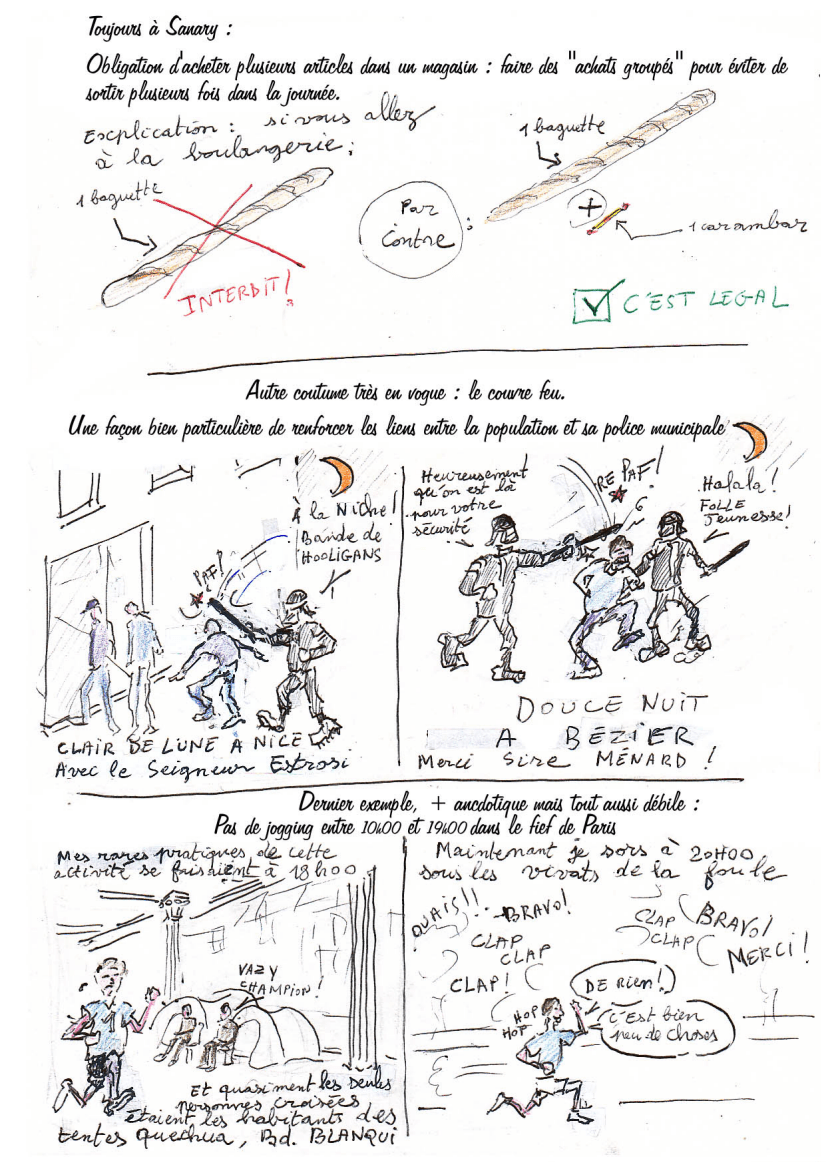 Toujours à Sanary :
Obligation d'acheter plusieurs articles dans un magasin : faire des "achats groupés" pour éviter de
sortir plusieurs fois dans la journée.
Escplication : si vous allez
à la boulangerie ;
1 baguette
INTERDIT !
Par
Contre
:
1 baguette
+
1 carambar
C'EST LEGAL
Autre coutume très en vogue : le couvre feu.
Une façon bien particulière de renforcer les liens entre la population et sa police municipale
À la Niche !
Bande de
HOOLIGANS
PAF !
CLAIR DE LUNE A NICE
Avec le Seigneur Estrosi
Heureusement
qu'on est là
pour votre
sécurité
RE PAF !
Halala !
FOLLE
Jeunesse !
DOUCE NUIT
A BÉZIER
Merci Sire MÉNARD !
Dernier exemple, + ancdotique mais tout aussi débile :
Pas de jogging entre 10h00 et 19h00 dans le fief de Paris
Mes rares pratiques de cette
activité se faisaient à 18h00
VAZY
CHAMPION !
Et quasiment les seules
personnes croisées
étaient les habitants des
tentes quechua, Bd. BLANQUI
Maintenant je sors à 20H00
sous les vivats de la foule
OUAIS !!
BRAVO !
CLAP
CLAP
CLAP !
CLAP
CLAP
BRAVO !
MERCI !
HOP
HOP
DE RIEN !
C'est bien
peu de choses